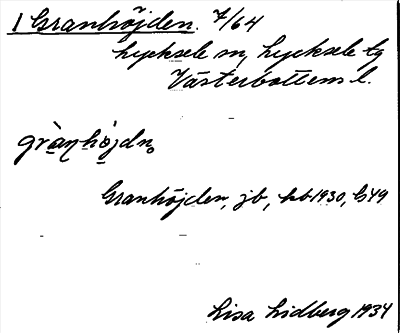 1 Granhöjden. 7/64
Lycksele sn, Lycksele tg
Västerbottens l.
grànhòjdn̥
Granhöjden, jb, hb 1930, bl 49
Lisa Lidberg 1934